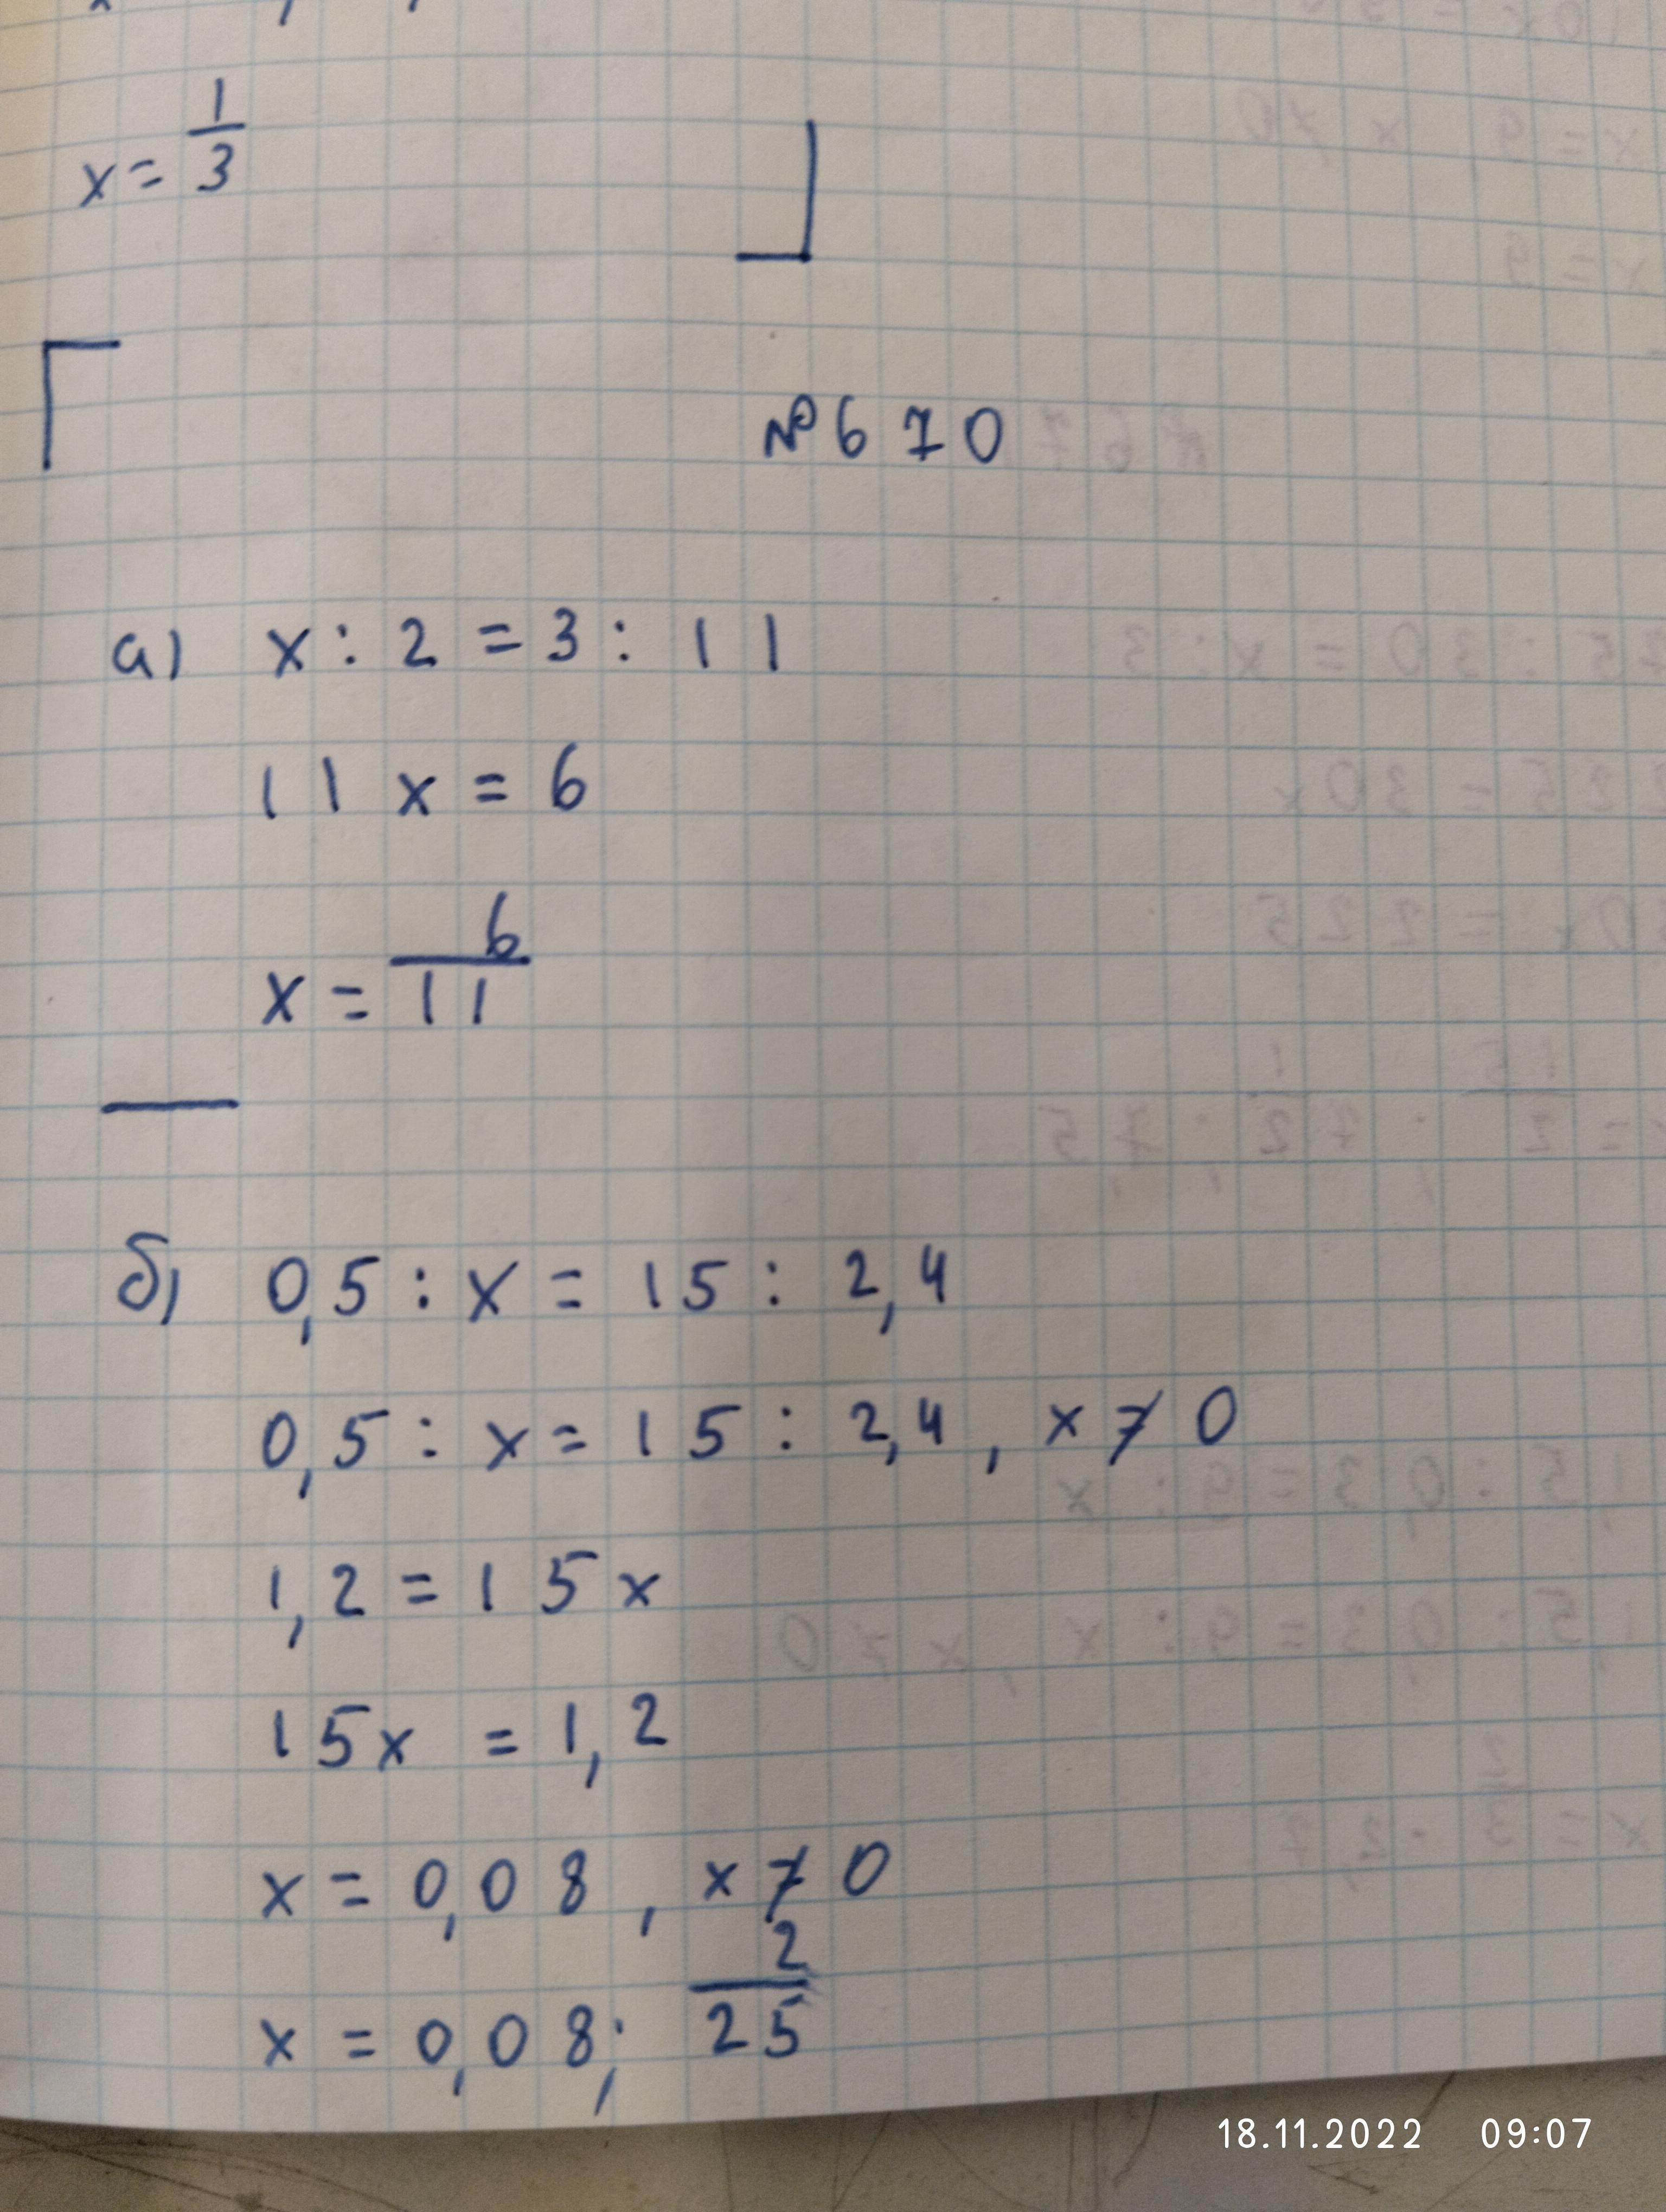 x = 1/3
№ 670
а) x : 2 = 3 : 11
11x = 6
x = 6/11
б) 0,5 : x = 15 : 2,4
0,5 : x = 15 : 2,4, x ≠ 0
1,2 = 15x
15x = 1,2
x = 0,08, x ≠ 0
x = 0,08; 2/25
18.11.2022 09:07